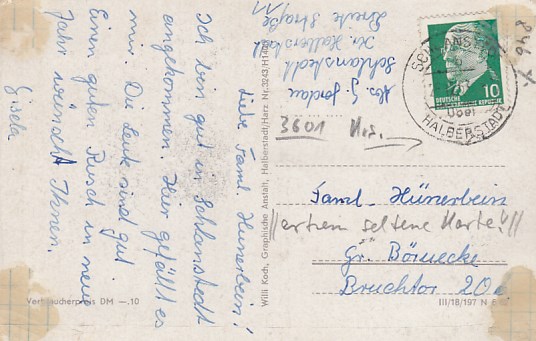 Liebe Faml. Hünerbein!
Ich bin gut in Schlanstedt
angekommen. Hier gefällt es
mir. Die Leute sind gut.
Einen guten Rusch in neue
Jahr wünscht Ihnen.
Gisela
Abs. G. Jordan
Schlanstedt
Kr. Halberstadt
Breite Straße
11
Willi Koch, Graphische Anstalt, Halberstadt/Harz
Verbraucherpreis DM —.10
846
DEUTSCHE
DEMOKRATISCHE REPUBLIK
10
SCHLANSTEDT
über
HALBERSTADT
3601
Faml. Hünerbein
//extrem seltene Karte!//
Gr. Börnecke
Bruchtor 20a
III/18/197